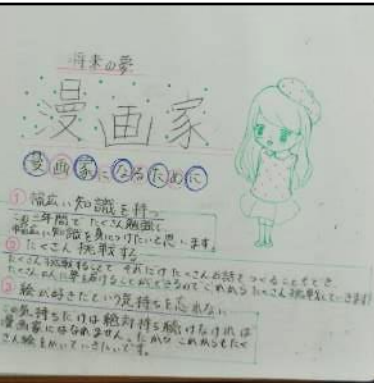 将来の夢
漫画家
漫画家になるために
① 幅広い知識を持つ
この三年間でたくさん勉強し
幅広い知識を身につけたいと思います。
② たくさん挑戦する
たくさん挑戦することで、それだけたくさんのお話をつくることもでき、
たくさんの人に夢を届けることができるのでこれからたくさん挑戦していきます!
③ 絵が好きだという気持ちを忘れない
この気持ちだけは絶対持ち続けなければ
漫画家にはなれません。だからこれからもたく
さん絵をかいていきたいです。